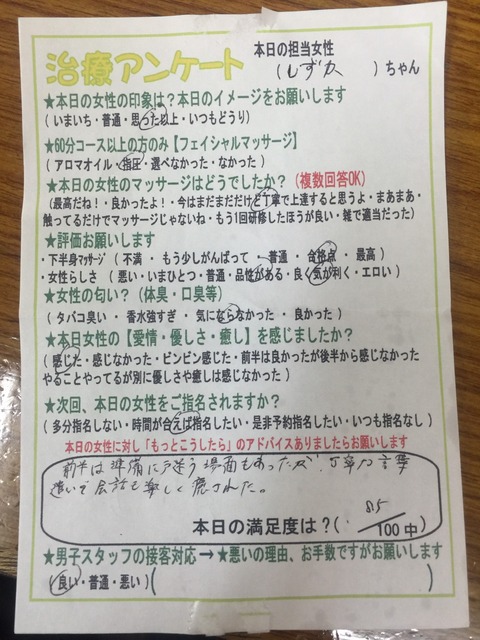 治療アンケート
本日の担当女性
(しずか)ちゃん
★本日の女性の印象は?本日のイメージをお願いします
(いまいち・普通・思った以上・いつもどうり)
★60分コース以上の方のみ【フェイシャルマッサージ】
(アロマオイル・指圧・選べなかった・なかった)
★本日の女性のマッサージはどうでしたか?(複数回答OK)
(最高だね!・良かったよ!・今はまだまだだけど丁寧で上達すると思うよ・まあまあ・
触ってるだけでマッサージじゃないね・もう1回研修したほうが良い・雑で適当だった)
★評価お願いします
・下半身マッサージ(不満・もう少しがんばって・普通・合格点・最高)
・女性らしさ(悪い・いまひとつ・普通・品性がある・良く気が利く・エロい)
★女性の匂い?(体臭・口臭等)
(タバコ臭い・香水強すぎ・気にならなかった・良かった)
★本日女性の【愛情・優しさ・癒し】を感じましたか?
(感じた・感じなかった・ビンビン感じた・前半は良かったが後半から感じなかった
やることやってるが別に優しさや癒しは感じなかった)
★次回、本日の女性をご指名されますか?
(多分指名しない・時間が合えば指名したい・是非予約指名したい・いつも指名なし)
本日の女性に対し「もっとこうしたら」のアドバイスありましたらお願いします
前半は準備に戸迷う場面もあったが、丁寧な言葉
遣いで会話も楽しく癒された。
本日の満足度は?(85/100中)
★男子スタッフの接客対応→★悪いの理由、お手数ですがお願いします
(良い・普通・悪い)( )